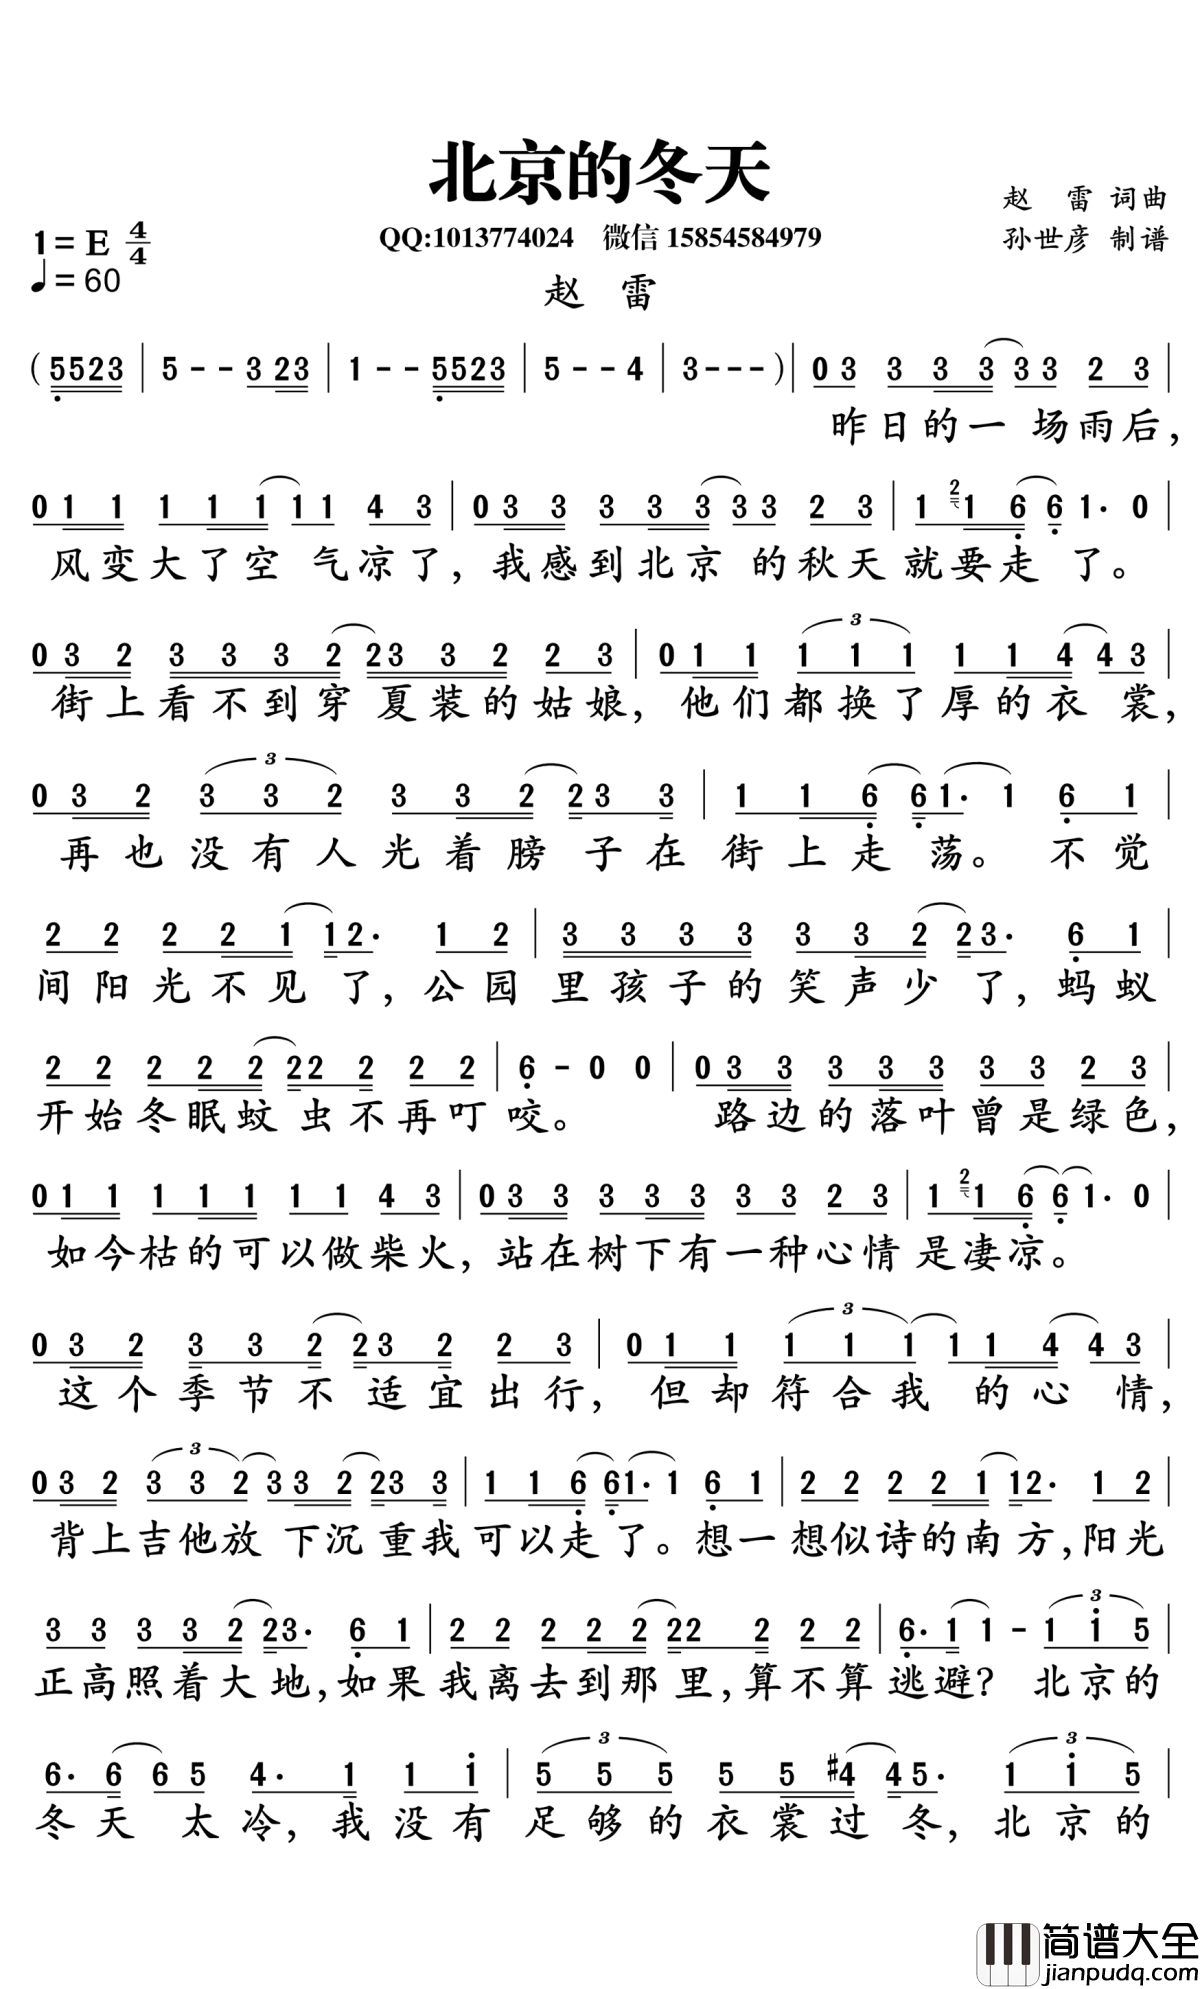 北京的冬天
赵 雷 词曲
1= E 4/4
QQ:1013774024 微信 15854584979
孙世彦 制谱
♩= 60
赵 雷
( 5523 | 5 - - 3 23 | 1 - - 5523 | 5 - - 4 | 3 - - - ) | 0 3 3 3 3 3 3 2 3 |
昨日的一 场雨后,
0 1 1 1 1 1 1 1 4 3 | 0 3 3 3 3 3 3 3 2 3 | 1 2 1 6 6 1· 0 |
风变大了空 气凉了, 我感到北京 的秋天就要走 了。
0 3 2 3 3 3 2 2 3 3 2 2 3 | 0 1 1 3 1 1 1 1 1 4 4 3 |
街上看不到穿 夏装的姑娘, 他们都换了厚的衣 裳,
0 3 2 3 3 3 2 3 3 2 2 3 3 | 1 1 6 6 1· 1 6 1 |
再也没有人光着膀 子在 街上走 荡。 不觉
2 2 2 2 1 1 2· 1 2 | 3 3 3 3 3 3 2 2 3· 6 1 |
间阳光不见 了, 公园 里孩子的笑声少 了, 蚂蚁
2 2 2 2 2 2 2 2 2 2 | 6 - 0 0 | 0 3 3 3 3 3 3 3 2 3 |
开始冬眠蚊 虫不再叮 咬。 路边的落叶曾是绿色,
0 1 1 1 1 1 1 1 4 3 | 0 3 3 3 3 3 3 3 2 3 | 1 2 1 6 6 1· 0 |
如今枯的可以做柴火, 站在树下有一种心情 是凄凉。
0 3 2 3 3 2 2 3 2 2 3 | 0 1 1 3 1 1 1 1 1 4 4 3 |
这个季节不 适宜出行, 但却符合我 的心 情,
0 3 2 3 3 3 2 3 3 2 2 3 3 | 1 1 6 6 1· 1 6 1 | 2 2 2 2 1 1 2· 1 2 |
背上吉他放 下沉 重我 可以走了。 想一想似诗的南方, 阳光
3 3 3 3 2 2 3· 6 1 | 2 2 2 2 2 2 2 2 2 2 | 6· 1 1 - 3 1 1 5 |
正高照着大地, 如果 我离去到那 里, 算不算 逃避? 北京的
6· 6 6 5 4· 1 1 1 | 3 5 5 5 5 5 #4 4 5· 3 1 1 5 |
冬天 太冷, 我没有 足够的衣裳过 冬, 北京的
简谱大全
jianpudq.com